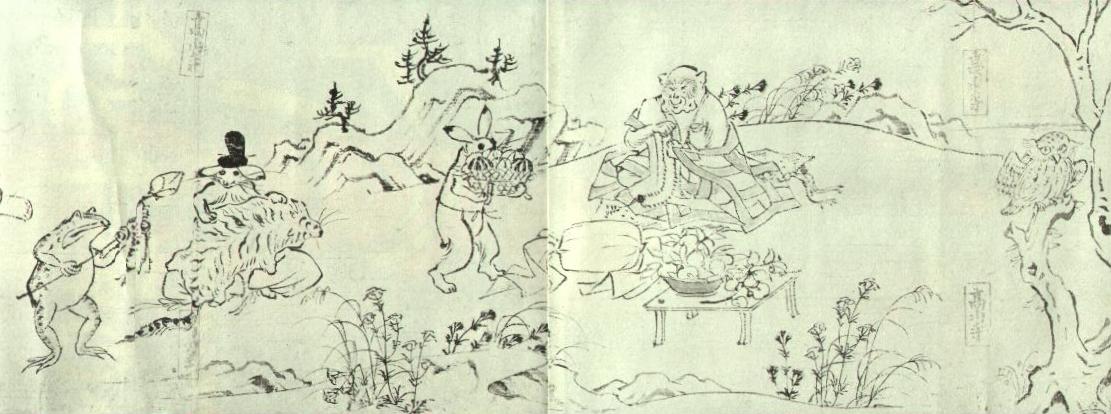 高山寺
高山寺
高山寺